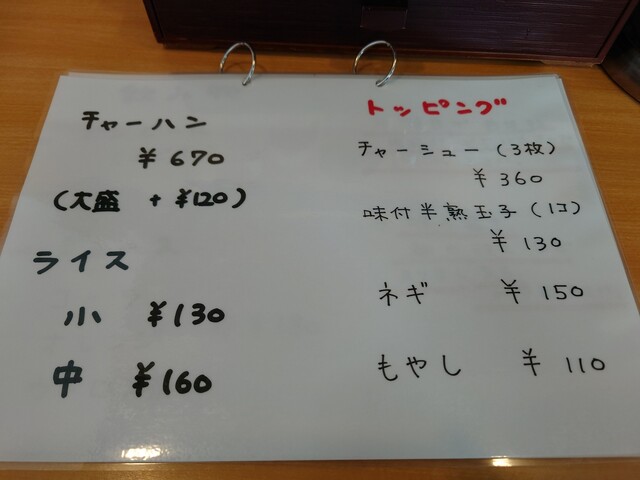 チャーハン
¥670
(大盛 + ¥120)
ライス
小 ¥130
中 ¥160
トッピング
チャーシュー (3枚)
¥360
味付半熟玉子 (1コ)
¥130
ネギ ¥150
もやし ¥110